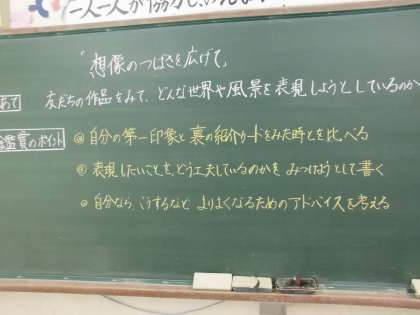 一人一人が協力し
「想像のつばさを広げて」
あて
友だちの作品をみて、どんな世界や風景を表現しようとしているのか
鑑賞のポイント
◎自分の第一印象と裏の紹介カードをみた時とを比べる
◎表現したいことを、どう工夫しているのかをみつけようとして書く
◎自分なら、こうするなど よりよくなるためのアドバイスを考える